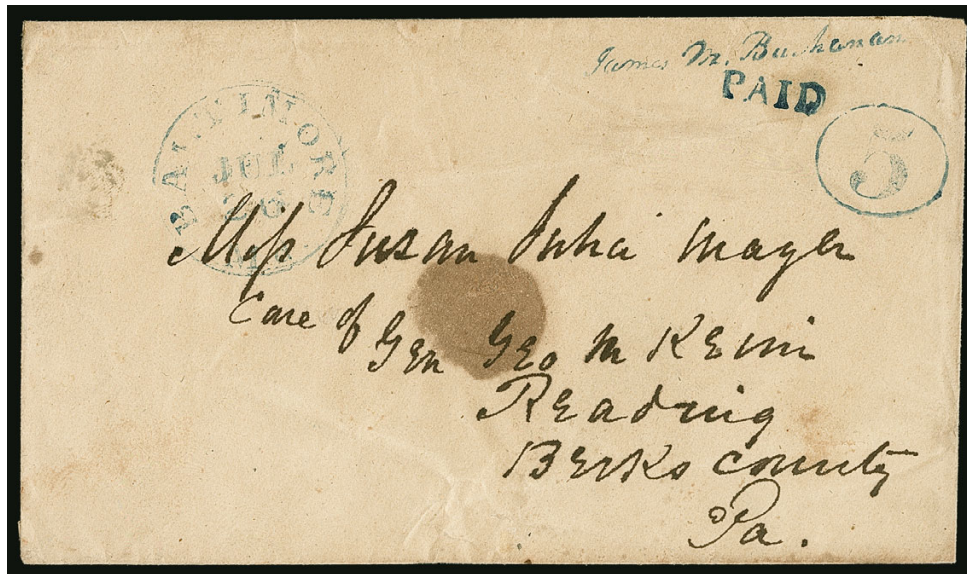 James M. Buchanan
PAID
5
BALTIMORE
JUL
26
Md.
Miss Susan Julia Mayer
Care of
Gen Geo M Keim
Reading
Berks County
Pa.